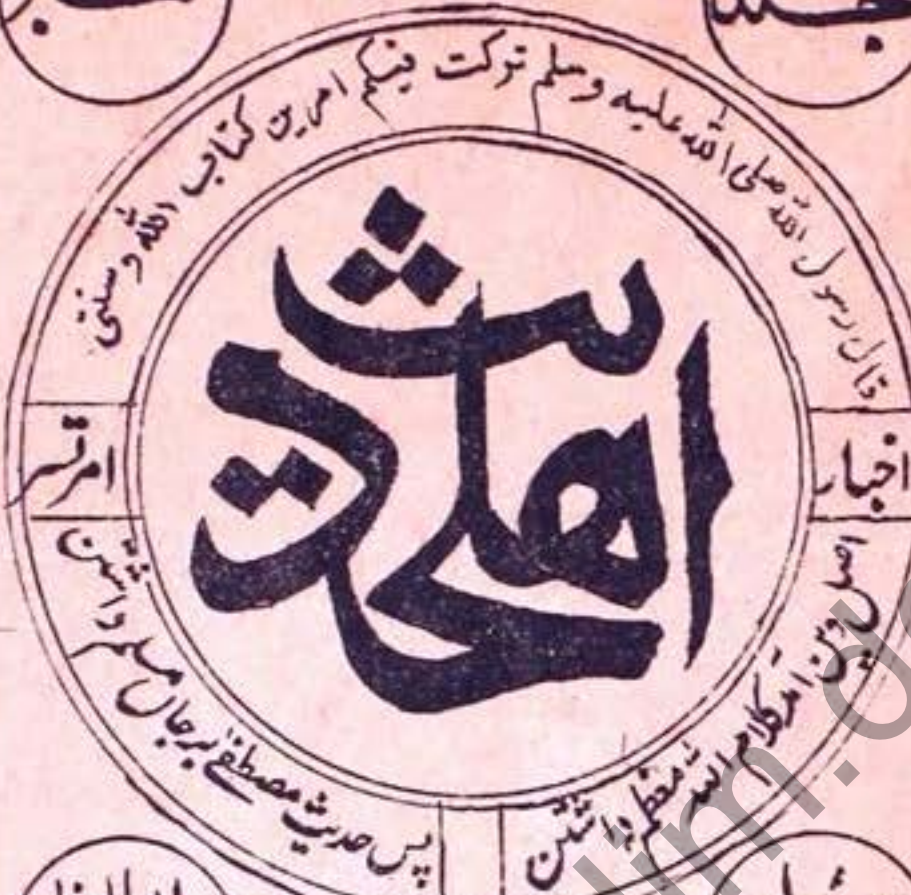 جلد
قال رسول الله صلی الله علیه وسلم ترکت فیکم امرین کتاب الله و سنتی
اخبار
اهلحدیث
امرتسر
اصل دین آمد کلام الله معظم داشتن
پس حدیث مصطفےٰ بر جاں مسلم داشتن